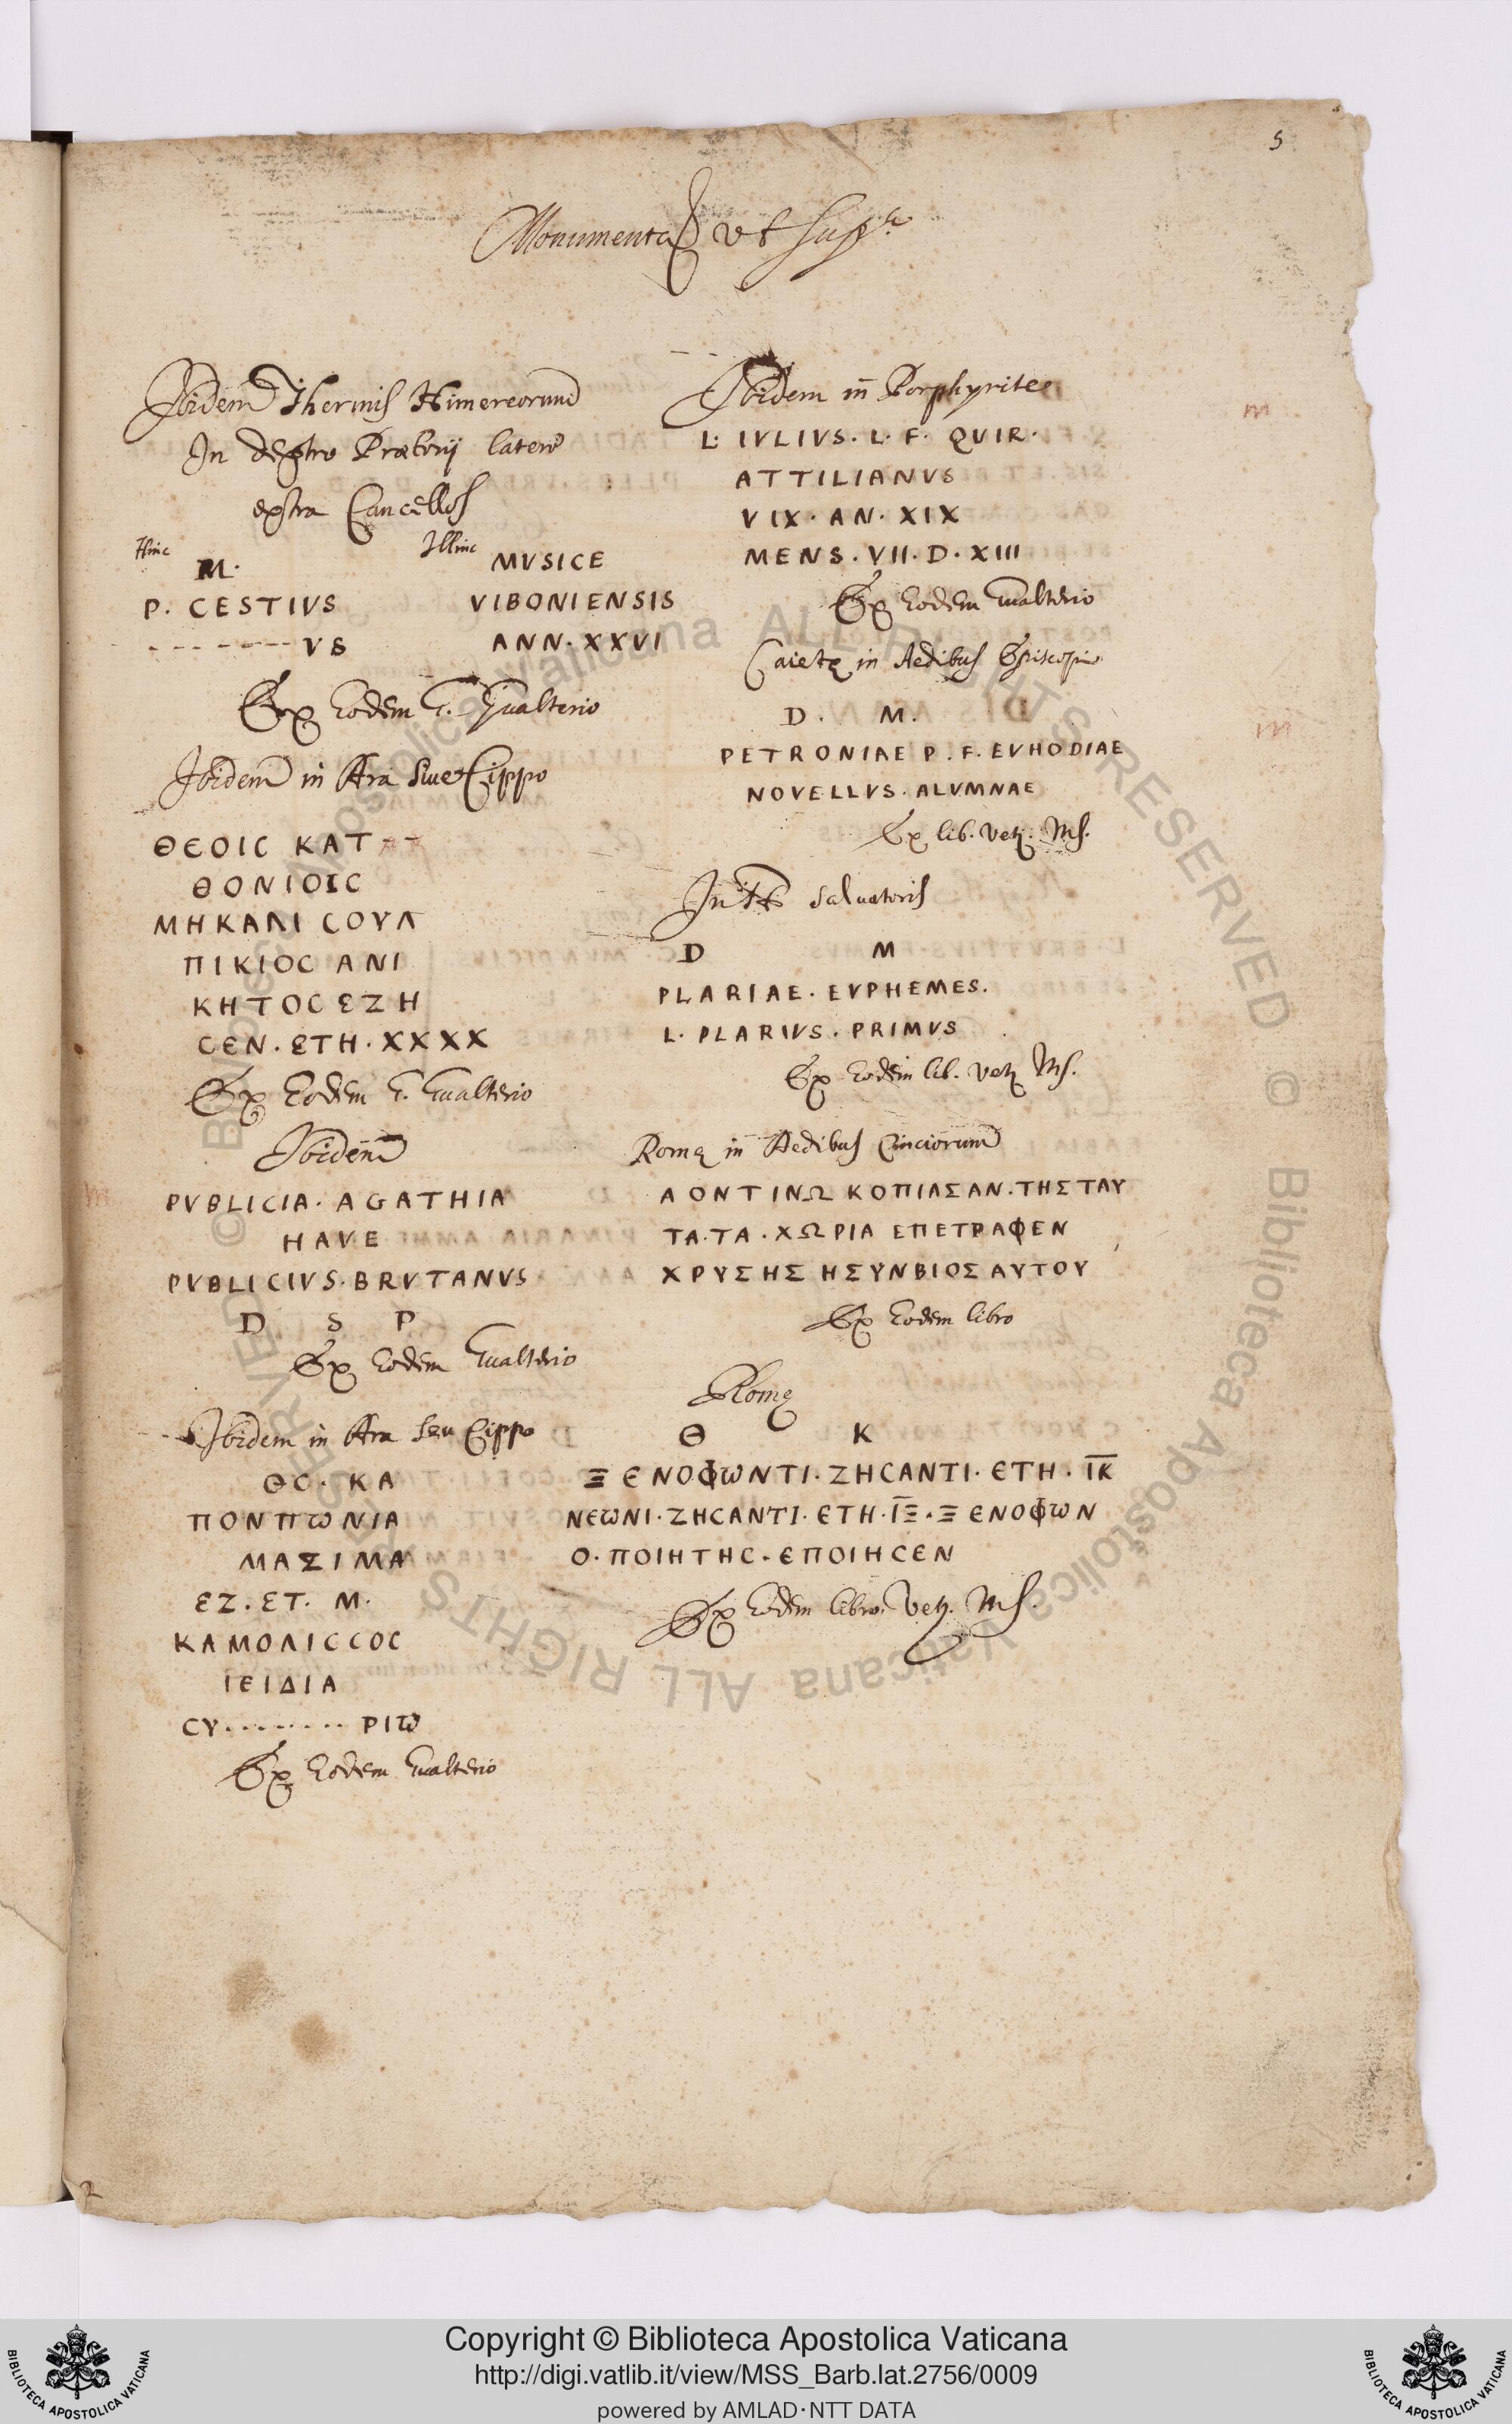 5
Monumenta ut sup.ª
Ibidem Thermis Himereorum
In dextro Prætorij latere
extra Cancellos
Hinc
M.
P. CESTIVS
- - - - - - - VS
Illinc
MVSICE
VIBONIENSIS
ANN. XXVI
Ex Eodem G. Gualterio
Ibidem in Ara siue Cippo
ΘΕΟΙC ΚΑΤ
ΘΟΝΙΟΙC
ΜΗΚΑΛΙ CΟΥΛ
ΠΙΚΙΟC ΑΝΙ
ΚΗΤΟC ΕΖΗ
CΕΝ. ΕΤΗ. ΧΧΧΧ
Ex Eodem G. Gualterio
Ibidem
m
PVBLICIA. AGATHIA
HAVE
PVBLICIVS. BRVTANVS
D S P
Ex Eodem Gualterio
Ibidem in Ara seu Cippo
ΘC. ΚΑ
ΠΟΝΠΩΝΙΑ
ΜΑΞΙΜΑ
ΕΖ. ΕΤ. Μ.
ΚΑΜΟΛΙCCΟC
ΙΕΙΔΙΑ
CΥ. . . . . . . . ΡΙΩ
Ex Eodem Gualterio
Ibidem in Porphyrite
m
L. IVLIVS. L. F. QVIR.
ATTILIANVS
VIX. AN. XIX
MENS. VII. D. XIII
Ex Eodem Gualterio
Caietę in Aedibus Episcopi
m
D. M.
PETRONIAE P. F. EVHODIAE
NOVELLVS. ALVMNAE
Ex lib. Vet. Ms.
Salvatoris
D M
PLARIAE. EVPHEMES.
L. PLARIVS. PRIMVS
Ex Eodem lib. Vet. Ms.
Romę in Aedibus Cinciorum
ΛΟΝΤΙΝΩ ΚΟΠΙΛΣΑΝ. ΤΗΣΤΑΥ
ΤΑ. ΤΑ. ΧΩΡΙΑ ΕΠΕΤΡΑΦΕΝ
ΧΡΥΣΗΣ ΗΣΥΝΒΙΟΣ ΑΥΤΟΥ
Ex Eodem libro
Romę
Θ Κ
ΞΕΝΟΦΩΝΤΙ. ΖΗCΑΝΤΙ. ΕΤΗ. Ι̅Κ̅
ΝΕΩΝΙ. ΖΗCΑΝΤΙ. ΕΤΗ. Ι̅Ξ̅. ΞΕΝΟΦΩΝ
Ο. ΠΟΙΗΤΗC. ΕΠΟΙΗCΕΝ
Ex Eodem libro. Vet. Ms.
Copyright © Biblioteca Apostolica Vaticana
http://digi.vatlib.it/view/MSS_Barb.lat.2756/0009
powered by AMLAD·NTT DATA
BIBLIOTECA APOSTOLICA VATICANA
BIBLIOTECA APOSTOLICA VATICANA
© Biblioteca Apostolica Vaticana ALL RIGHTS RESERVED © Biblioteca Apostolica Vaticana ALL RIGHTS RESERVED